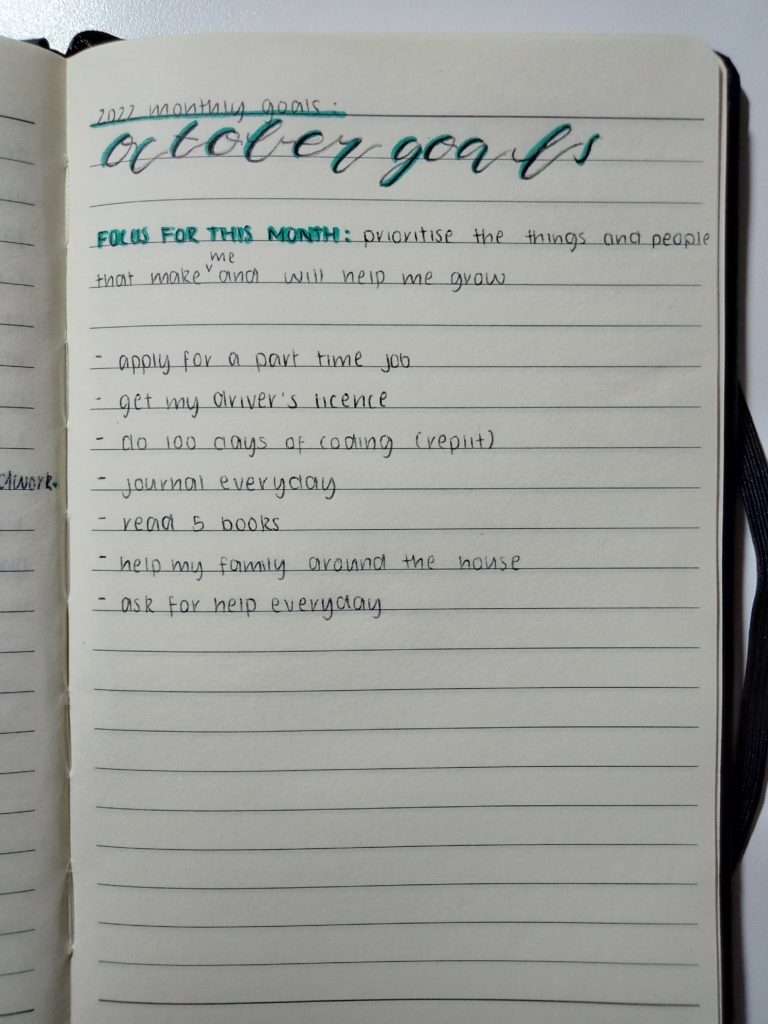 2022 monthly goals:
october goals
FOCUS FOR THIS MONTH: prioritise the things and people
me
that make ˅ and will help me grow
- apply for a part time job
- get my driver's licence
- do 100 days of coding (replit)
- journal everyday
- read 5 books
- help my family around the house
- ask for help everyday